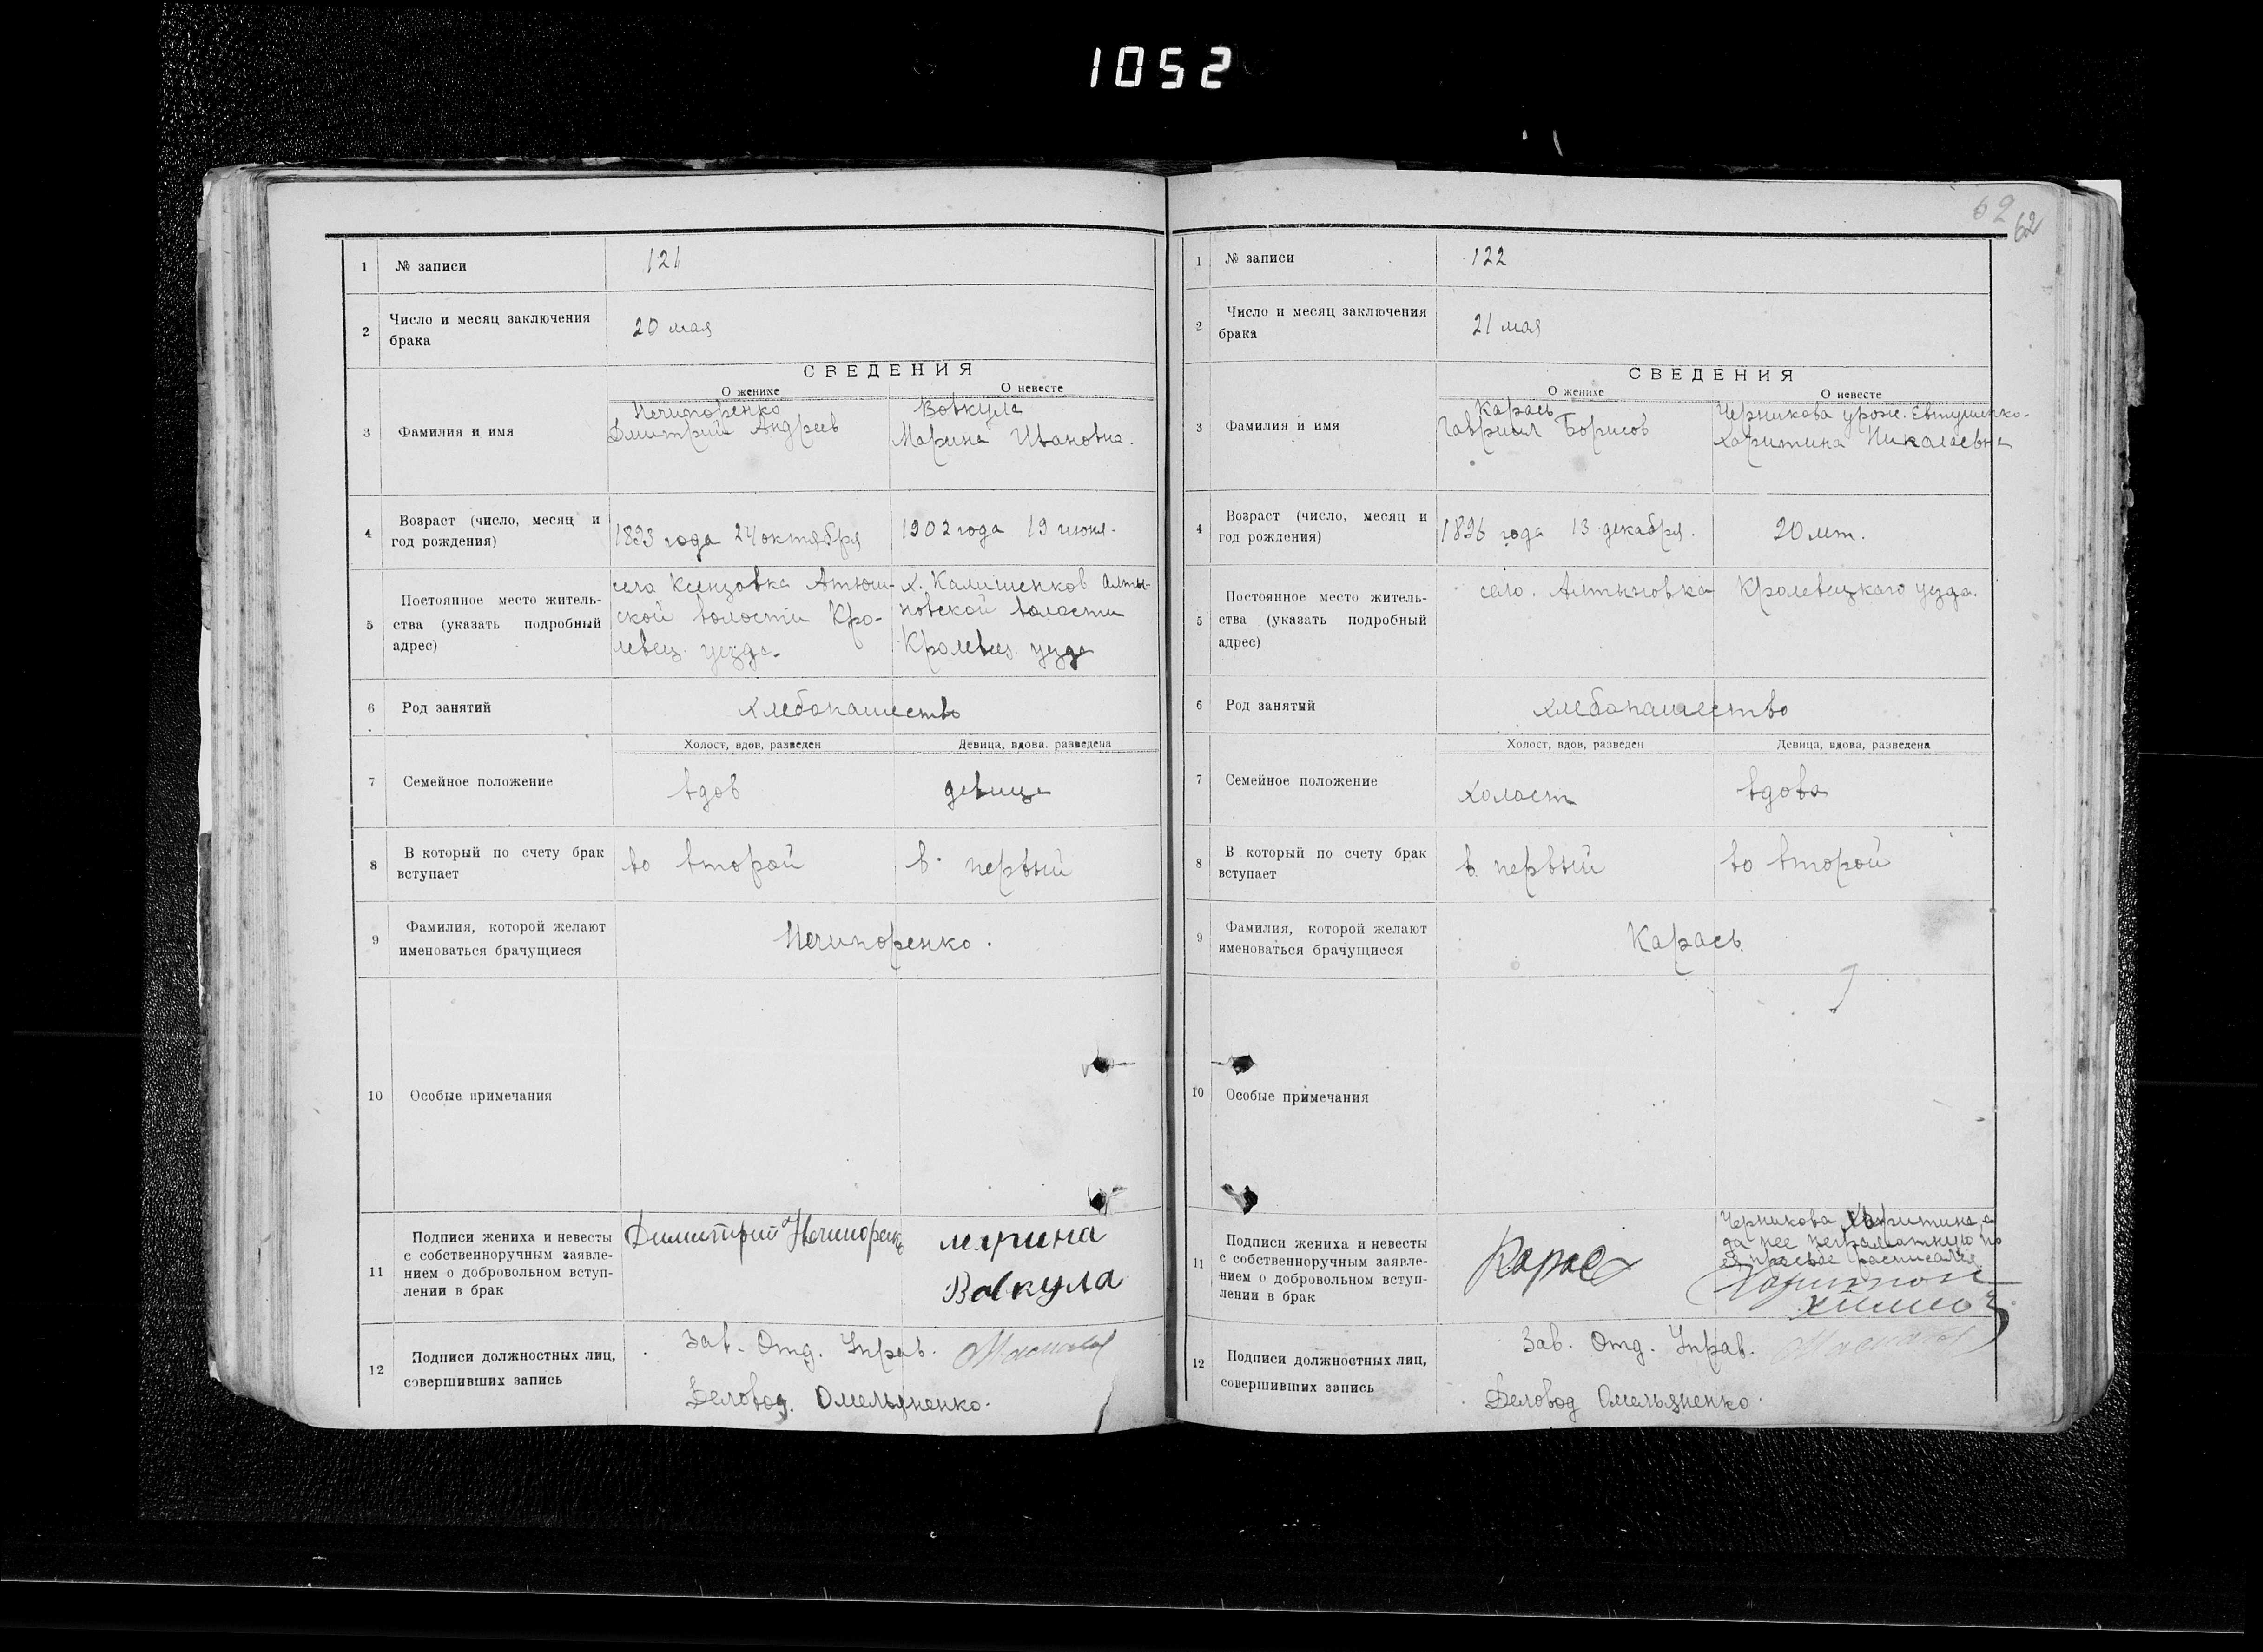 1052
1 № записи 121
2 Число и месяц заключения
брака
20 мая
СВЕДЕНИЯ
О женихе О невесте
3 Фамилия и имя
Нечипоренко
Дмитрий Андреев
Вовкула
Марина Ивановна.
4 Возраст (число, месяц и
год рождения)
1893 года 24 октября
1902 года 19 июня.
5 Постоянное место житель-
ства (указать подробный
адрес)
село Ксендзовка Атюш-
ской волости Кро-
левец. уезда.
х. Калишенков Алты-
новской волости
Кролевец. уезда
6 Род занятий хлебопашество
Холост, вдов, разведен Девица, вдова, разведена
7 Семейное положение вдов девица
8 В который по счету брак
вступает
во второй в первый
9 Фамилия, которой желают
именоваться брачущиеся
Нечипоренко.
10 Особые примечания
11 Подписи жениха и невесты
с собственноручным заявле-
нием о добровольном вступ-
лении в брак
Димитрий Нечипоренко
марина
Вовкула
12 Подписи должностных лиц,
совершивших запись
Зав. Отд. Управ.
Деловод. Омельяненко.
62 62
1 № записи 122
2 Число и месяц заключения
брака
21 мая
СВЕДЕНИЯ
О женихе О невесте
3 Фамилия и имя
Карась
Гавриил Борисов
Черникова урож. Евтушенко.
Харитина Николаевна
4 Возраст (число, месяц и
год рождения)
1896 года 13 декабря.
20 лет.
5 Постоянное место житель-
ства (указать подробный
адрес)
село. Алтыновка Кролевецкаго уезда.
6 Род занятий хлебопашество
Холост, вдов, разведен Девица, вдова, разведена
7 Семейное положение холост вдова
8 В который по счету брак
вступает
в первый во второй
9 Фамилия, которой желают
именоваться брачущиеся
Карась
10 Особые примечания
11 Подписи жениха и невесты
с собственноручным заявле-
нием о добровольном вступ-
лении в брак
Карась
Черникова Харитина а
за нее неграмотную по
ея просьбе расписался
Харитон
12 Подписи должностных лиц,
совершивших запись
Зав. Отд. Управ.
Деловод Омельяненко.